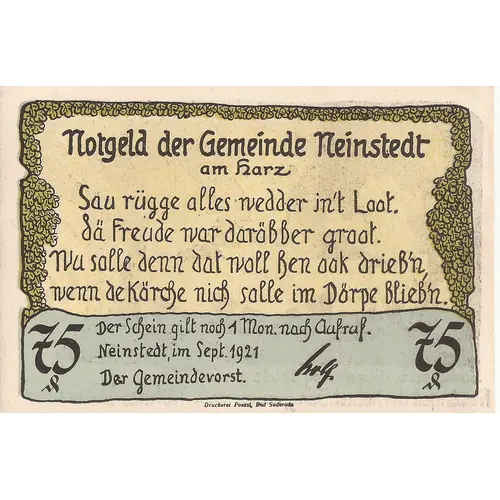 Notgeld der Gemeinde Neinstedt
am Harz
Sau rügge alles wedder in't Loot.
Dä Freude war daröbber groot.
Wu solle denn dat woll hen ook drieb'n,
wenn de Kärche nich solle im Dörpe blieb'n.
75 ₰ Der Schein gilt noch 1 Mon. nach Aufruf. 75 ₰
Neinstedt, im Sept. 1921
Der Gemeindevorst.
Druckerei Poessl, Bad Suderode